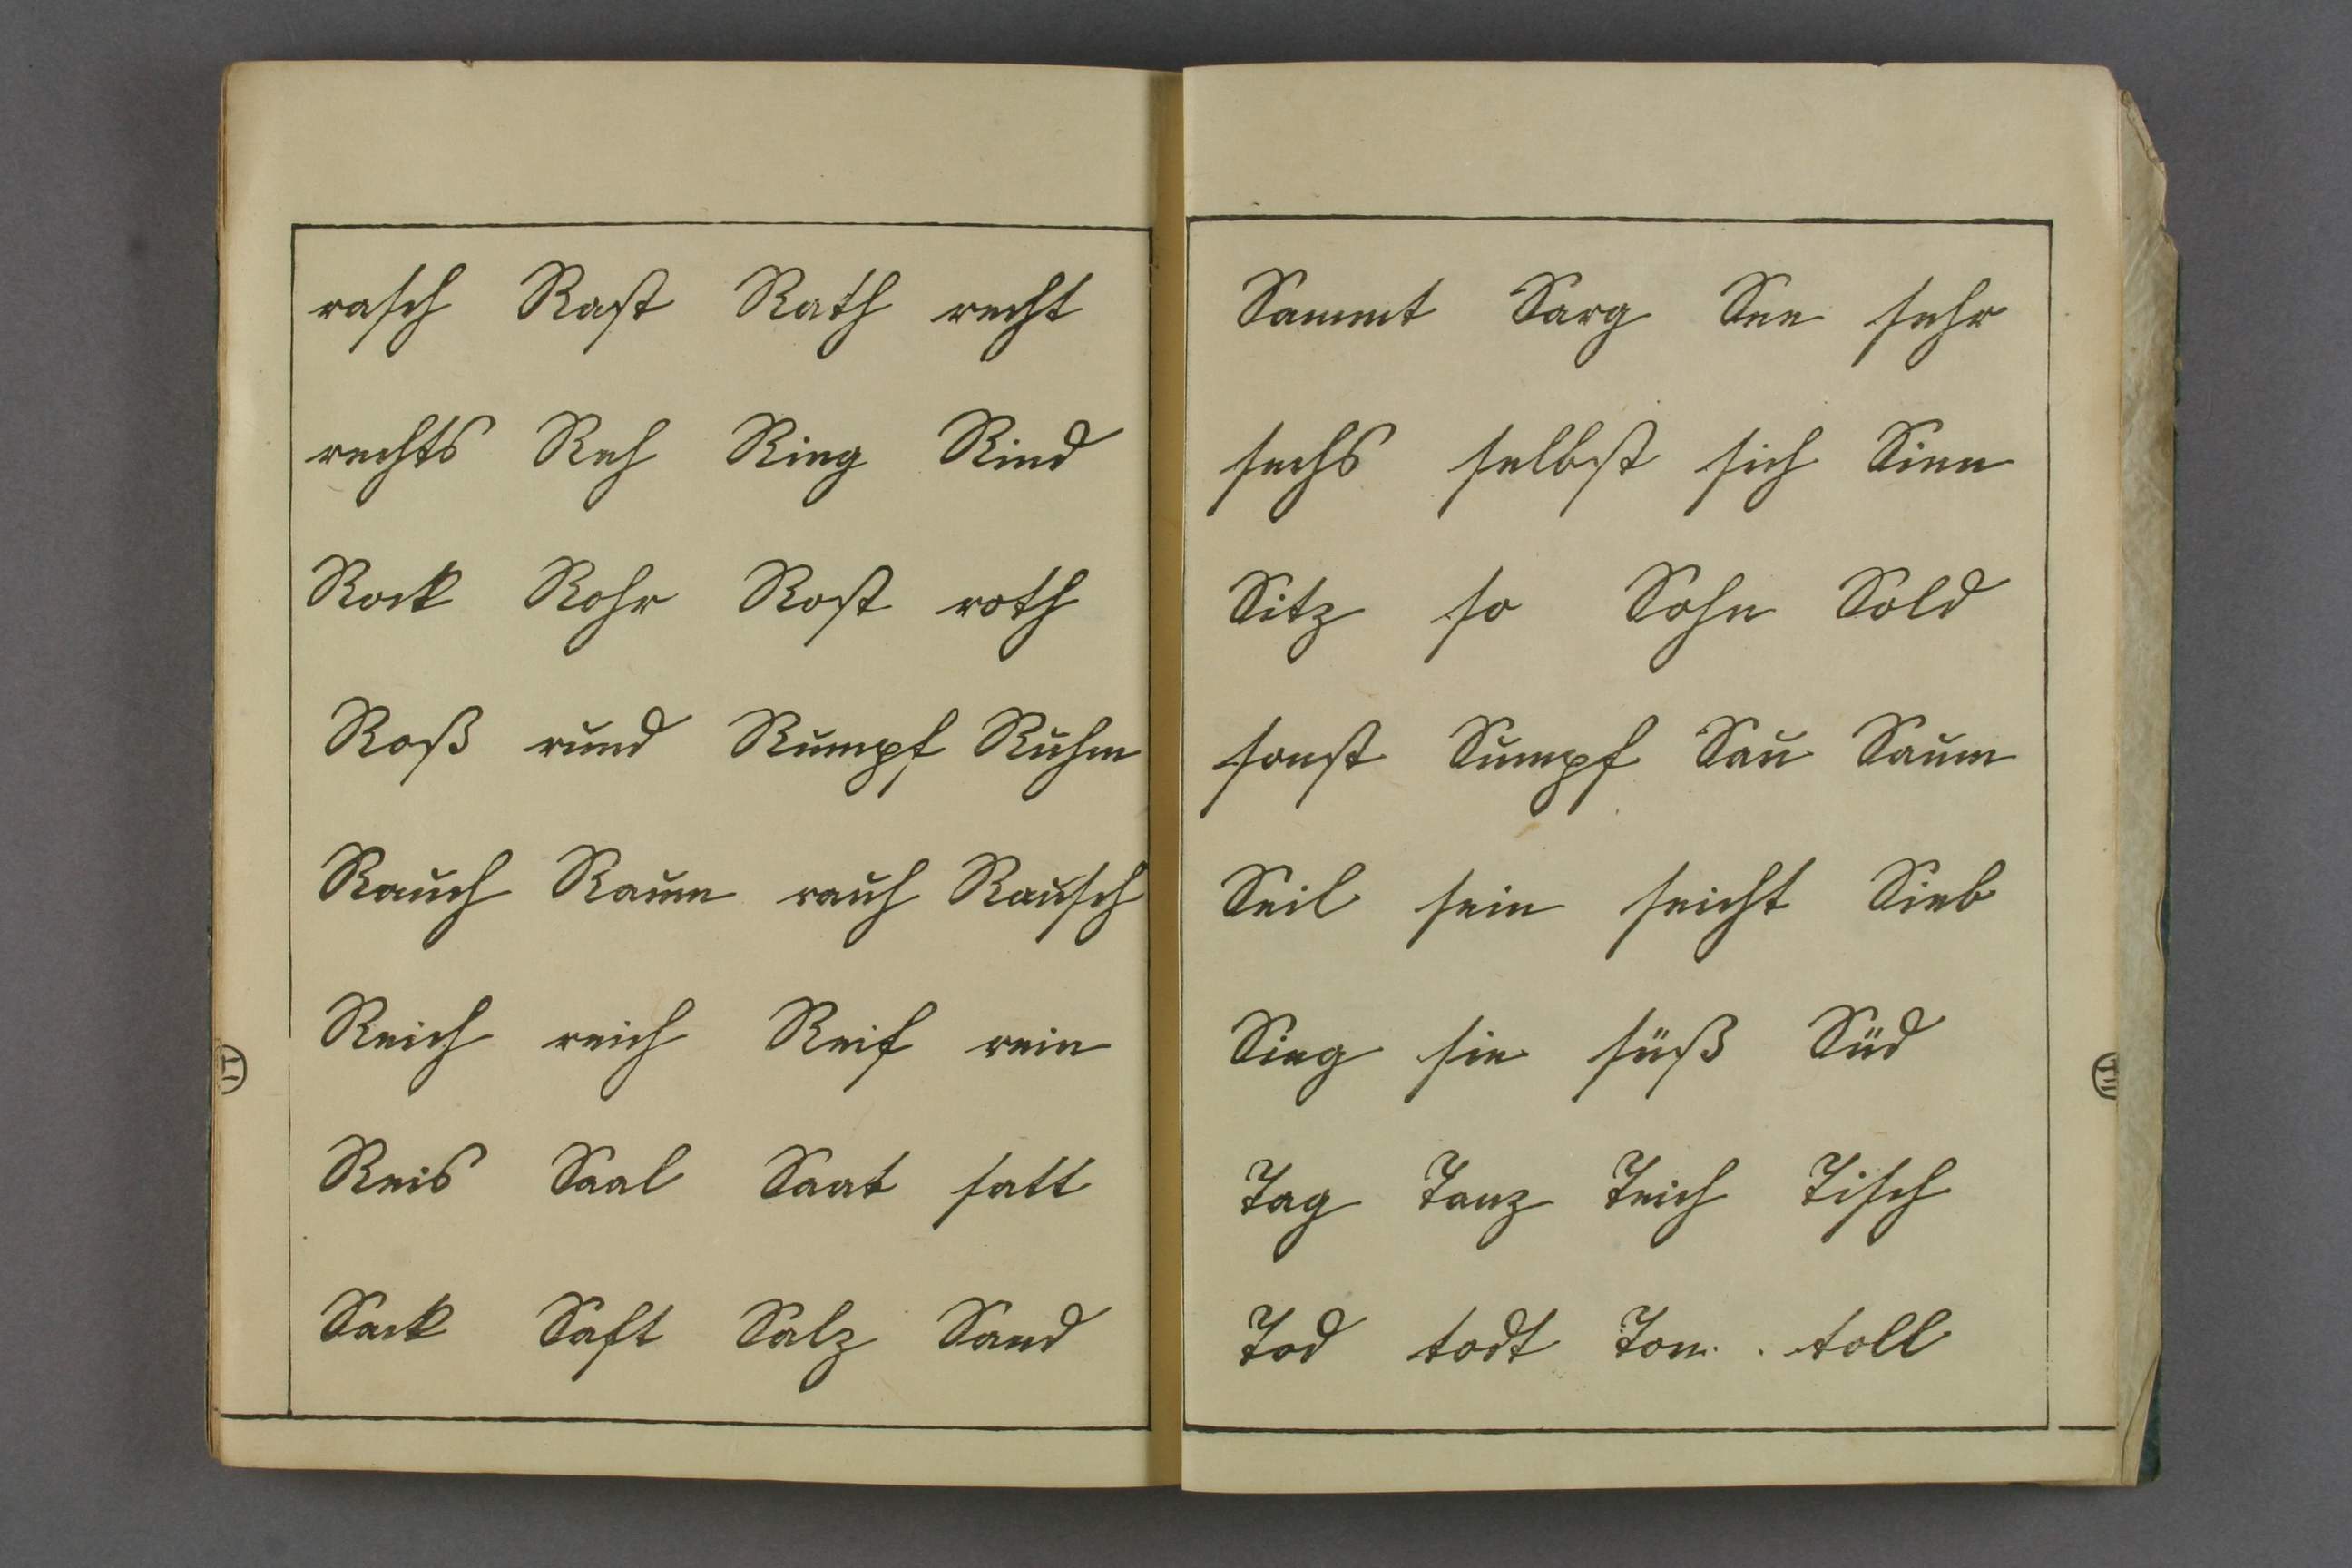 rasch Rast Rath recht
rechts Reh Ring Rind
Rock Rohr Rost roth
Roß rund Rumpf Ruhm
Rauch Raum rauh Rausch
Reich reich Reif rein
Reis Saal Saat satt
Sack Saft Salz Sand
Sammt Sarg See sehr
sechs selbst sich Sinn
Sitz so Sohn Sold
sonst Sumpf Sau Saum
Seil sein seicht Sieb
Sieg sie süß Süd
Tag Tanz Teich Tisch
Tod todt Ton toll